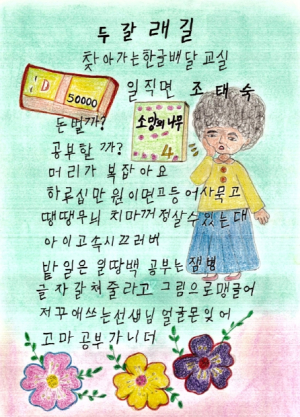 두 갈 래 길
찾아가는 한글배달 교실
일직면 조태숙
50000
소망의 나무
4
돈벌까?
공부할 까?
머리가 복잡아요
하루십만 원이면프등어사묵고
땡땡무늬 치마꺼정살수있는대
아이고속시끄러버
밭일은 월땅백 공부는잼병
글자갈쳐줄라고 그림으로맹글어
저꾸애쓰는선생님 얼굴몬잊어
고마 공부가니더